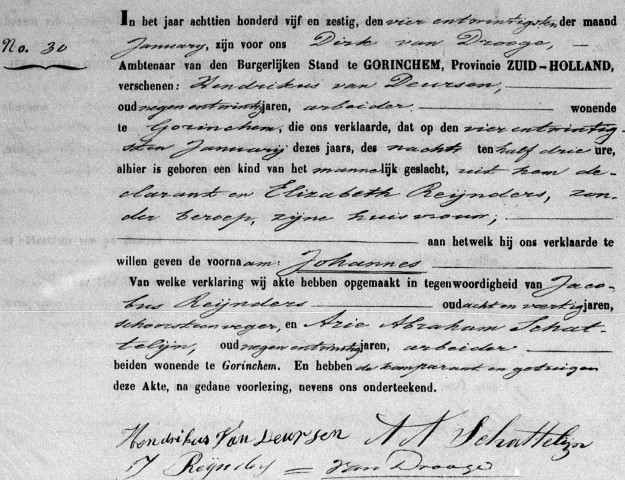 In het jaar achttien honderd vijf en zestig, den vier entwintigsten der maand
No. 30
January, zijn voor ons Dirk van Drooge,
Ambtenaar van den Burgerlijken Stand te GORINCHEM, Provincie ZUID-HOLLAND,
verschenen: Hendrikus van Deursen,
oud negen entwintig jaren, arbeider wonende
te Gorinchem, die ons verklaarde, dat op den vier entwintig-
sten January dezes jaars, des nachts ten half drie ure,
alhier is geboren een kind van het mannelijk geslacht, uit hem de-
clarant en Elizabeth Reijnders, zon-
der beroep, zijne huisvrouw;
aan hetwelk hij ons verklaarde te
willen geven de voornaam Johannes
Van welke verklaring wij akte hebben opgemaakt in tegenwoordigheid van Jaco-
bus Reijnders oud acht en veertig jaren,
schoorsteenveger, en Arie Abraham Schat-
telijn, oud negen entwintig jaren, arbeider
beiden wonende te Gorinchem. En hebben de komparant en getuigen
deze Akte, na gedane voorlezing, nevens ons onderteekend.
Hendrikus Van Deursen A A Schattelijn
J Reijnders van Drooge